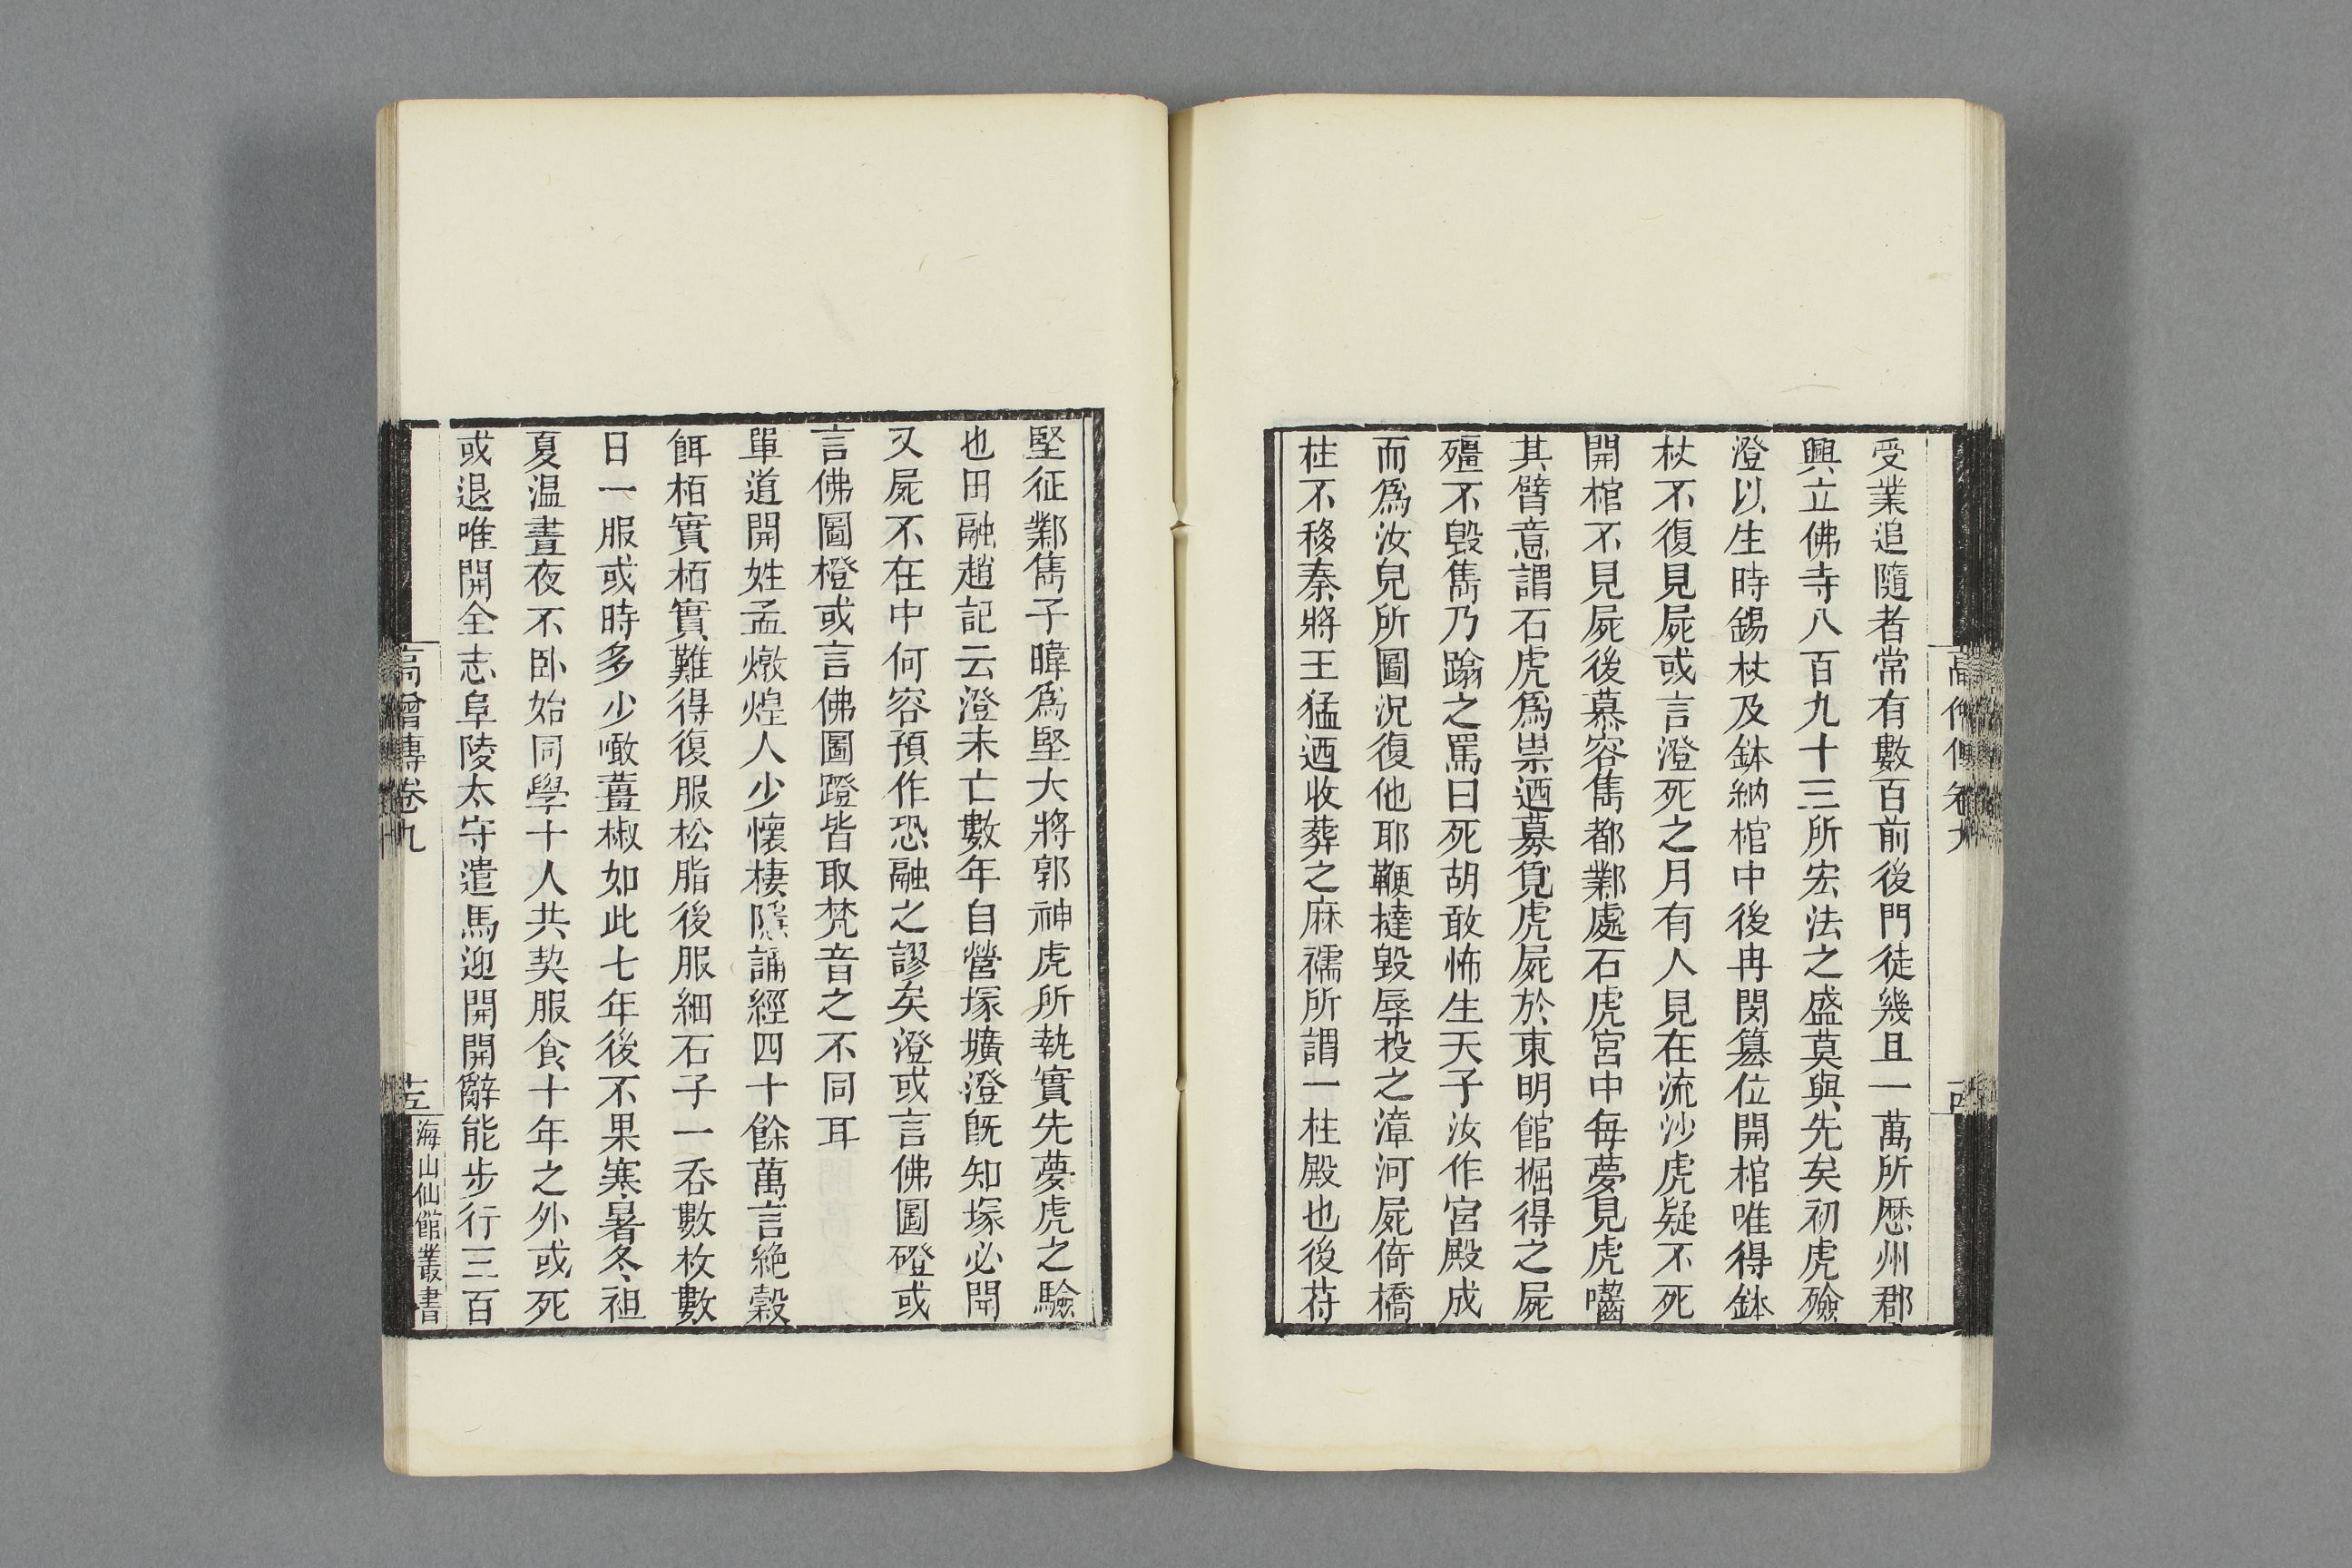 高僧傳卷九
受業追隨者常有數百前後門徒幾且一萬所歷州郡
興立佛寺八百九十三所宏法之盛莫與先矣初虎殮
澄以生時錫杖及鉢納棺中後冉閔篡位開棺唯得鉢
杖不復見屍或言澄死之月有人見在流沙虎疑不死
開棺不見屍後慕容雋都鄴處石虎宮中每夢見虎嚙
其臂意謂石虎爲祟迺募覓虎屍於東明館掘得之屍
殭不毀雋乃蹋之罵曰死胡敢怖生天子汝作宮殿成
而爲汝兒所圖況復他耶鞭撻毀辱投之漳河屍倚橋
柱不移秦將王猛迺收葬之麻襦所謂一柱殿也後苻
堅征鄴雋子暐爲堅大將郭神虎所執實先夢虎之驗
也田融趙記云澄未亡數年自營塚壙澄旣知塚必開
又屍不在中何容預作恐融之謬矣澄或言佛圖磴或
言佛圖橙或言佛圖蹬皆取梵音之不同耳
單道開姓孟燉煌人少懷棲隱誦經四十餘萬言絶穀
餌栢實栢實難得復服松脂後服細石子一吞數枚數
日一服或時多少噉薑椒如此七年後不果寒暑冬袒
夏温晝夜不卧始同學十人共契服食十年之外或死
或退唯開全志阜陵太守遣馬迎開開辭能步行三百
高僧傳卷九
十五
海山仙館叢書